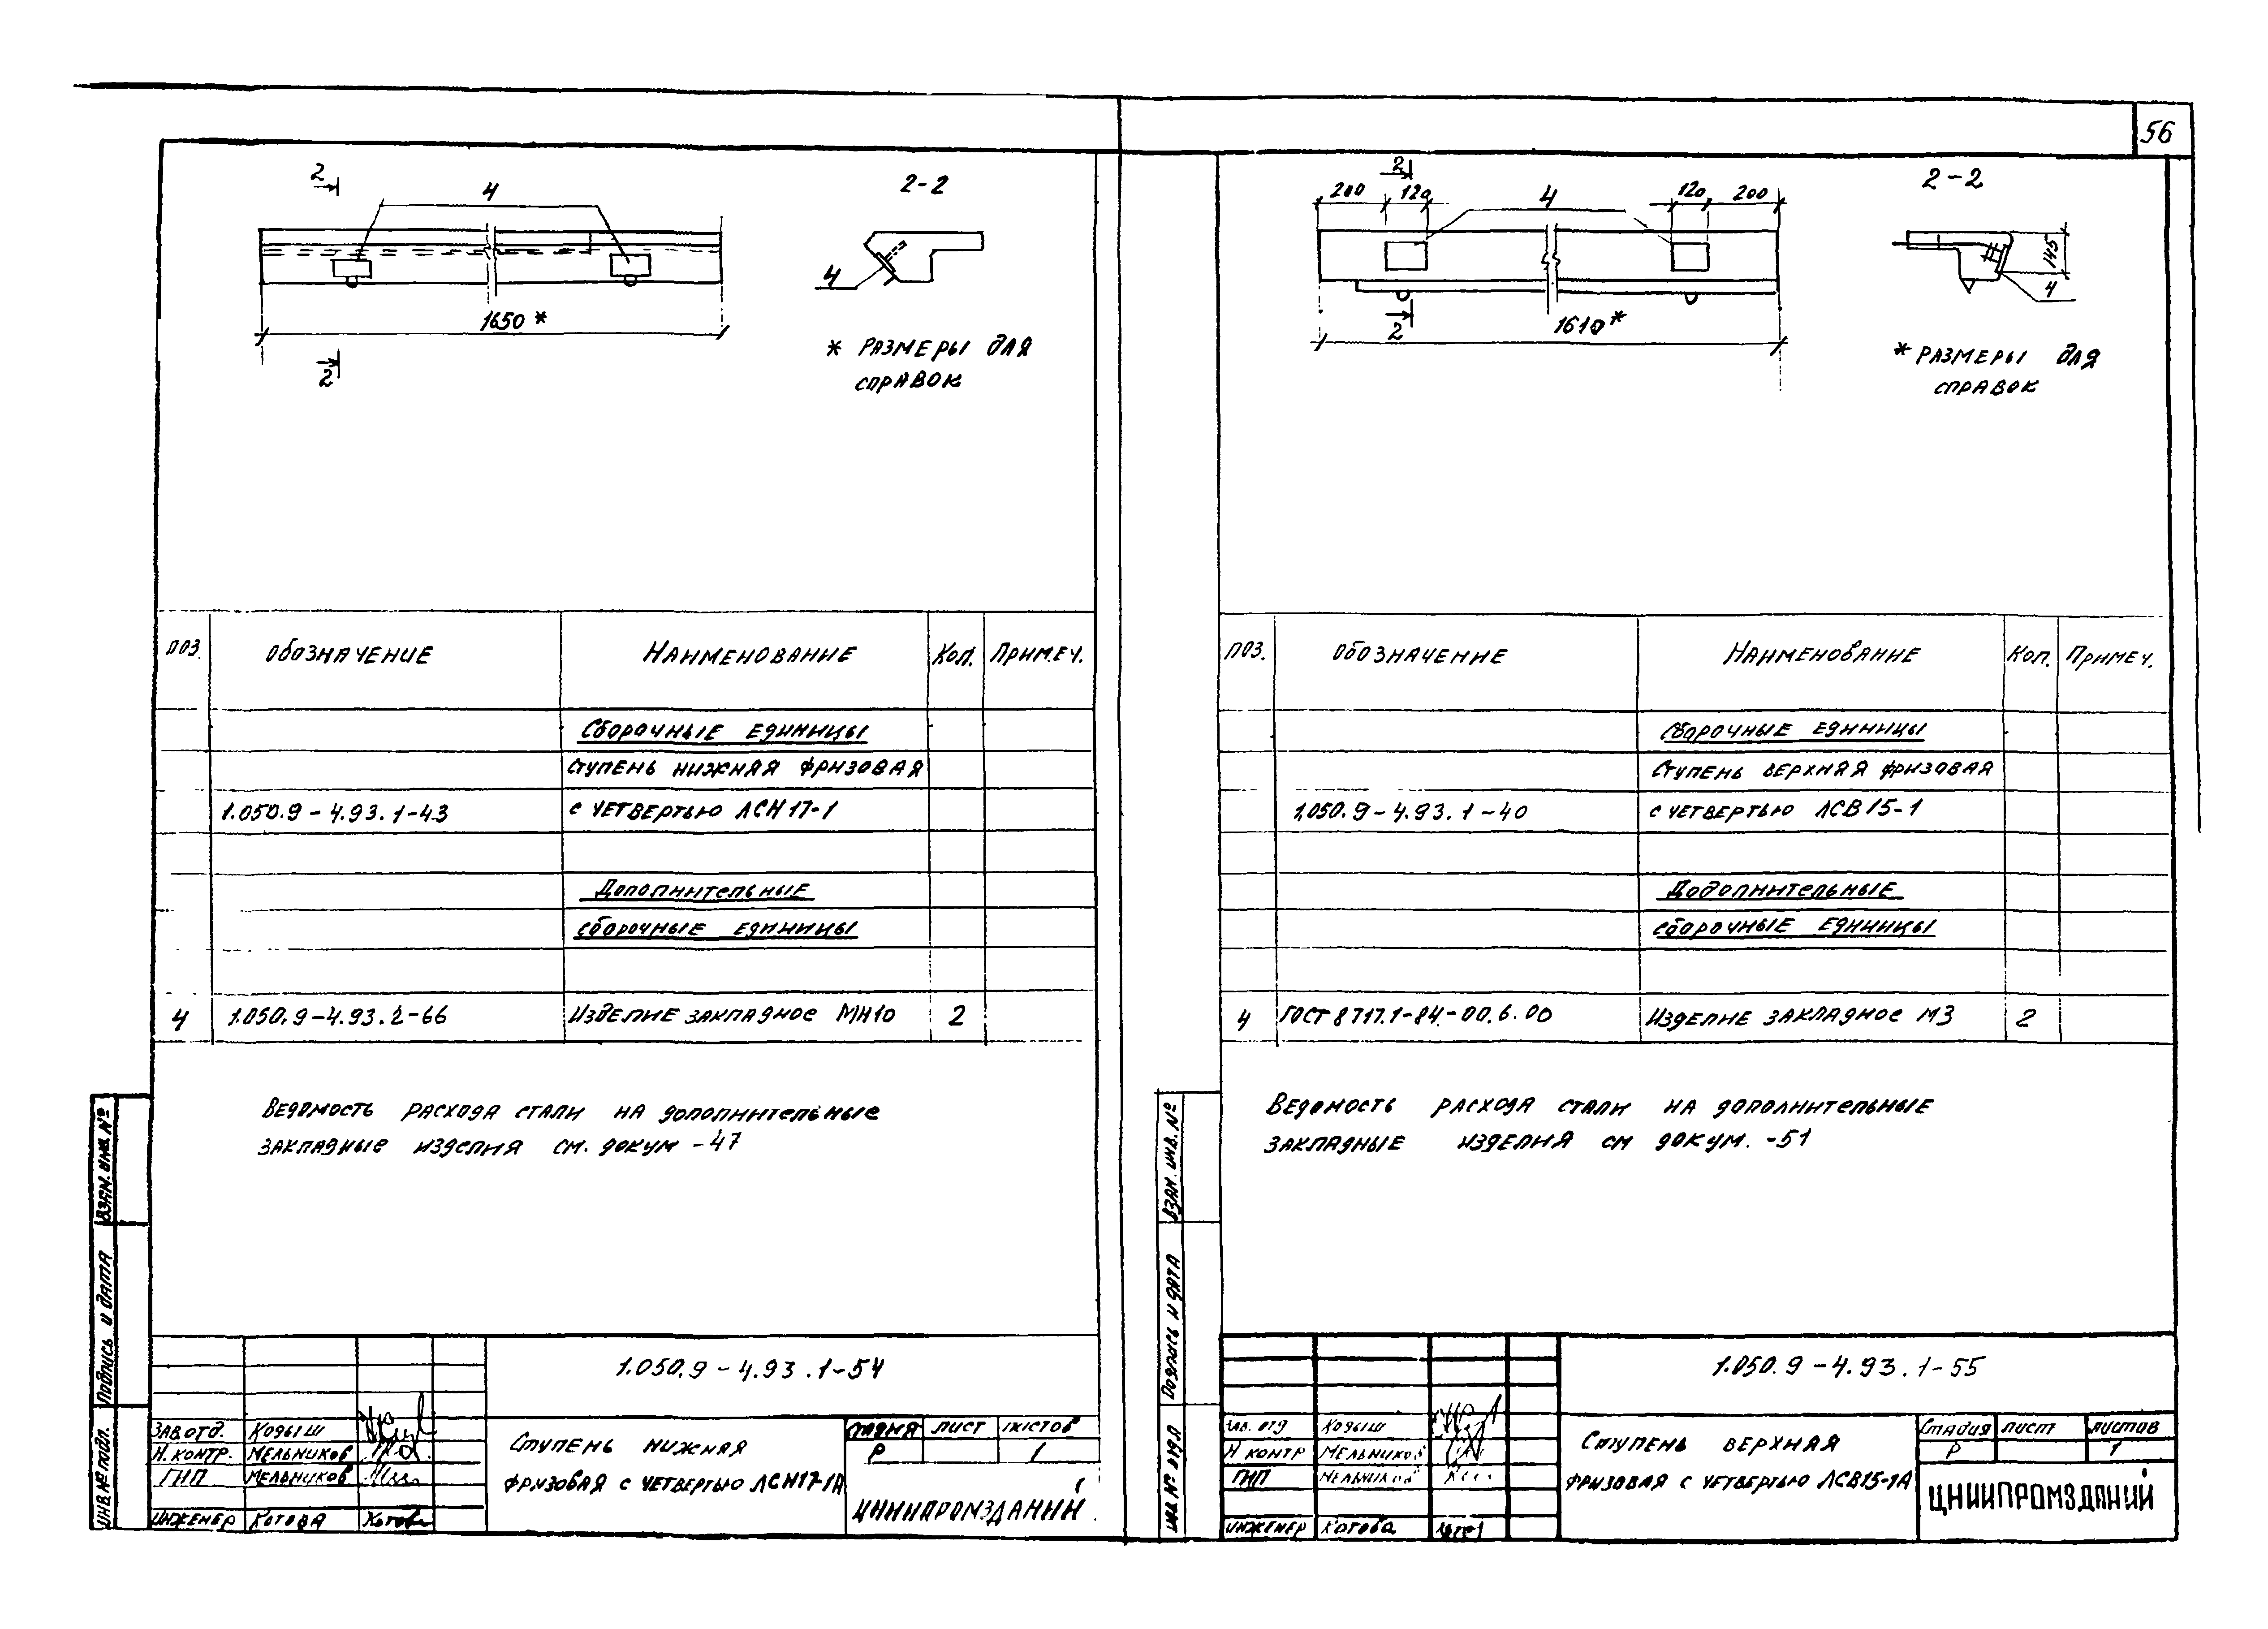 56
2
4
2-2
4
1650 *
2
* РАЗМЕРЫ ДЛЯ
СПРАВОК
ПОЗ. ОБОЗНАЧЕНИЕ НАИМЕНОВАНИЕ КОЛ. ПРИМЕЧ.
СБОРОЧНЫЕ ЕДИНИЦЫ
СТУПЕНЬ НИЖНЯЯ ФРИЗОВАЯ
1.050.9-4.93.1-43 С ЧЕТВЕРТЬЮ ЛСН 17-1
ДОПОЛНИТЕЛЬНЫЕ
СБОРОЧНЫЕ ЕДИНИЦЫ
4 1.050.9-4.93.2-66 ИЗДЕЛИЕ ЗАКЛАДНОЕ МН10 2
ВЕДОМОСТЬ РАСХОДА СТАЛИ НА ДОПОЛНИТЕЛЬНЫЕ
ЗАКЛАДНЫЕ ИЗДЕЛИЯ СМ. ДОКУМ -47
ВЗАМ. ИНВ. №
Подпись и дата
ИНВ № подл.
1.050.9-4.93.1-54
ЗАВ ОТД. КОДЫШ
Н. КОНТР. МЕЛЬНИКОВ
ГИП МЕЛЬНИКОВ
ИНЖЕНЕР КОТОВА
СТУПЕНЬ НИЖНЯЯ
ФРИЗОВАЯ С ЧЕТВЕРТЬЮ ЛСН17-1А
СТАДИЯ ЛИСТ ЛИСТОВ
Р 1
ЦНИИПРОМЗДАНИЙ
2
200 120 4 120 200
2-2
145
4
2
1610*
* РАЗМЕРЫ ДЛЯ
СПРАВОК
ПОЗ. ОБОЗНАЧЕНИЕ НАИМЕНОВАНИЕ КОЛ. ПРИМЕЧ.
СБОРОЧНЫЕ ЕДИНИЦЫ
СТУПЕНЬ ВЕРХНЯЯ ФРИЗОВАЯ
1.050.9-4.93.1-40 С ЧЕТВЕРТЬЮ ЛСВ 15-1
ДОПОЛНИТЕЛЬНЫЕ
СБОРОЧНЫЕ ЕДИНИЦЫ
4 ГОСТ 8717.1-84-00.6.00 ИЗДЕЛИЕ ЗАКЛАДНОЕ М3 2
ВЕДОМОСТЬ РАСХОДА СТАЛИ НА ДОПОЛНИТЕЛЬНЫЕ
ЗАКЛАДНЫЕ ИЗДЕЛИЯ СМ ДОКУМ. -51
ВЗАМ. ИНВ. №
Подпись и дата
ИНВ № подл
1.050.9-4.93.1-55
ЗАВ. ОТД КОДЫШ
Н КОНТР МЕЛЬНИКОВ
ГИП МЕЛЬНИКОВ
ИНЖЕНЕР КОТОВА
СТУПЕНЬ ВЕРХНЯЯ
ФРИЗОВАЯ С ЧЕТВЕРТЬЮ ЛСВ15-1А
СТАДИЯ ЛИСТ ЛИСТОВ
Р 1
ЦНИИПРОМЗДАНИЙ